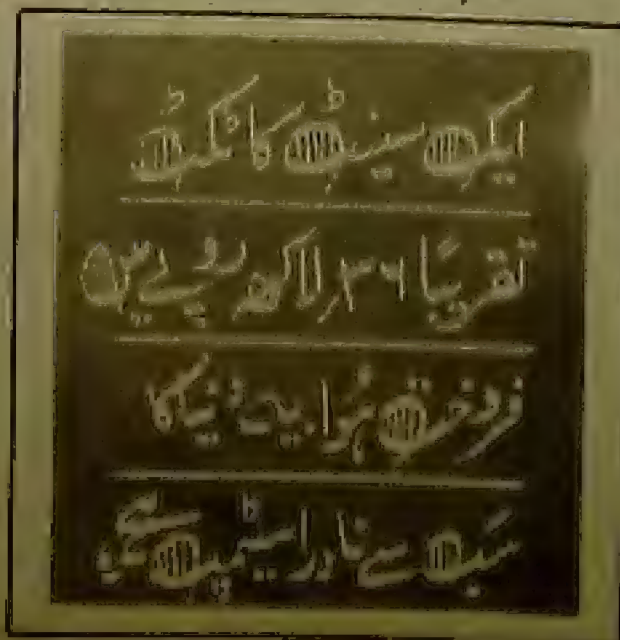 ایک سینٹ کا ٹکٹ
تقریباً ۳۶ لاکھ روپے میں
فروخت ہوا۔ یہ دنیا کا
سب سے نادر اسٹیمپ ہے